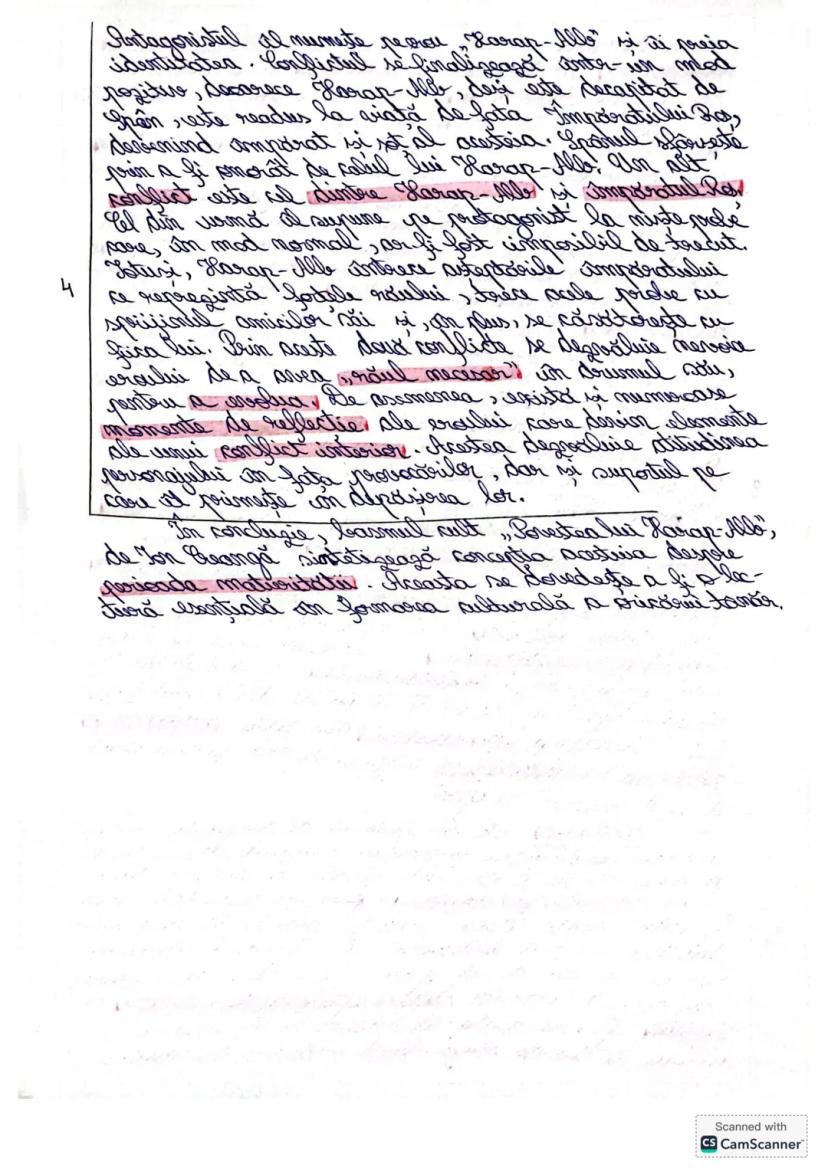 Antagonistul îl numește pe erou "Harap-Alb" și îi preia
identitatea. Conflictul se finalizează într-un mod
pozitiv, deoarece Harap-Alb, deși este decapitat de
Spân, este readus la viață de fata Împăratului Roș,
devenind împărat și soț al acesteia. Spânul sfârșește
prin a fi omorât de calul lui Harap-Alb. Un alt
conflict este cel dintre Harap-Alb și împăratul Roș.
Cel din urmă îl supune pe protagonist la niște probe
care, în mod normal, ar fi fost imposibil de trecut.
Totuși, Harap-Alb întrece așteptările împăratului
ce reprezintă forțele răului, trece acele probe cu
sprijinul amicilor săi și, în plus, se căsătorește cu
fiica lui. Prin aceste două conflicte se dezvăluie nevoia
eroului de a avea „răul necesar" în drumul său,
pentru a evolua. De asemenea, există și numeroase
4
momente de reflecție ale eroului care devin elemente
ale unui conflict interior. Acestea dezvăluie atitudinea
personajului în fața provocărilor, dar și suportul pe
care îl primește în depășirea lor.
În concluzie, basmul cult „Povestea lui Harap-Alb",
de Ion Creangă sintetizează concepția acestuia despre
perioada maturității. Aceasta se dovedește a fi o lec-
tură esențială în formarea culturală a oricărui tânăr.
Scanned with
CS CamScanner